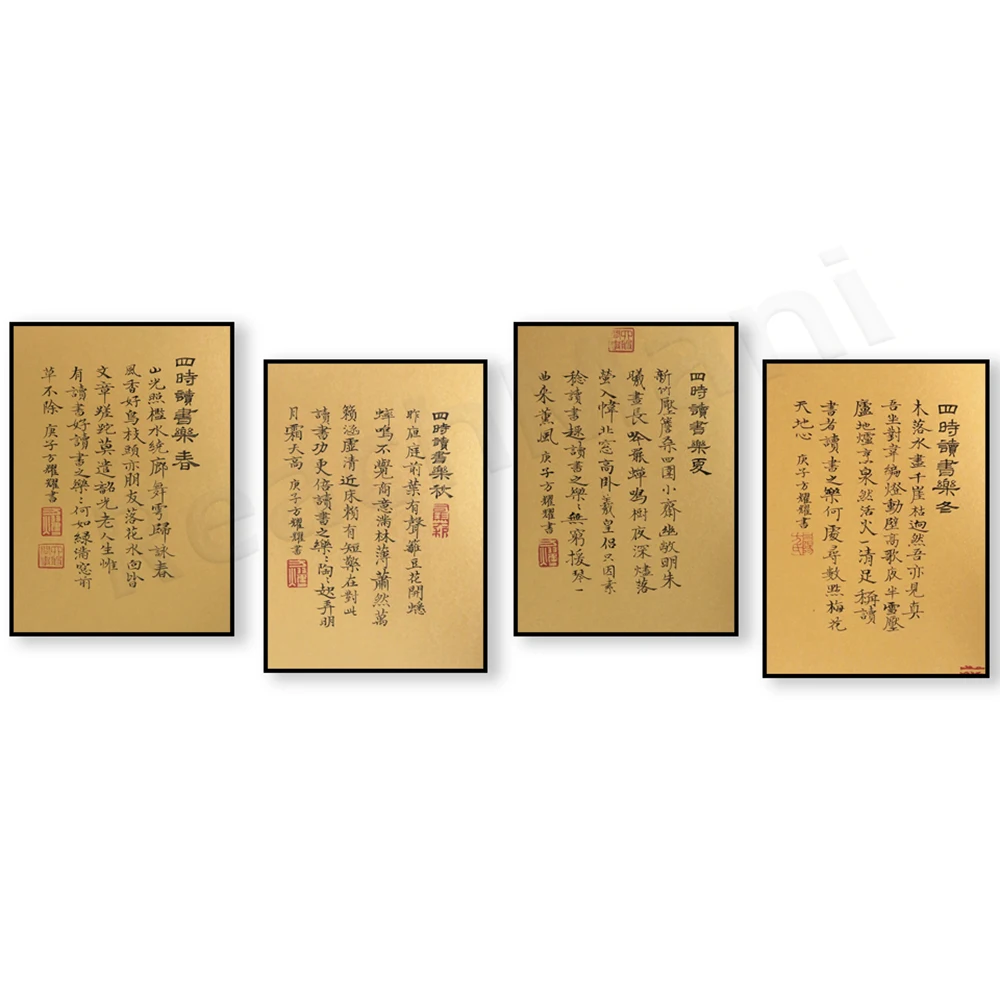 四時讀書樂春
山光照檻水繞廊舞雩歸詠春
風香好鳥枝頭亦朋友落花水面皆
文章蹉跎莫遣韶光老人生惟
有讀書好讀書之樂〻何如綠滿窓前
草不除 庚子方耀書
四時讀書樂秋
昨夜庭前葉有聲籬豆花開蟋
蟀鳴不覺商意滿林薄蕭然萬
籟涵虛清近床賴有短檠在對此
讀書功更倍讀書之樂〻陶〻起弄明
月霜天高 庚子方耀書
四時讀書樂夏
新竹壓簷桑四圍小齋幽敞明朱
曦晝長吟罷蟬鳴樹夜深燼落
螢入幃北窓高卧羲皇侶只因素
稔讀書趣讀書之樂〻無窮援琴一
曲來薰風 庚子方耀書
四時讀書樂冬
木落水盡千崖枯迥然吾亦見真
吾坐對韋編燈動壁高歌夜半雪壓
廬地爐烹泉然活火一清足稱讀
書者讀書之樂何處尋數點梅花
天地心 庚子方耀書